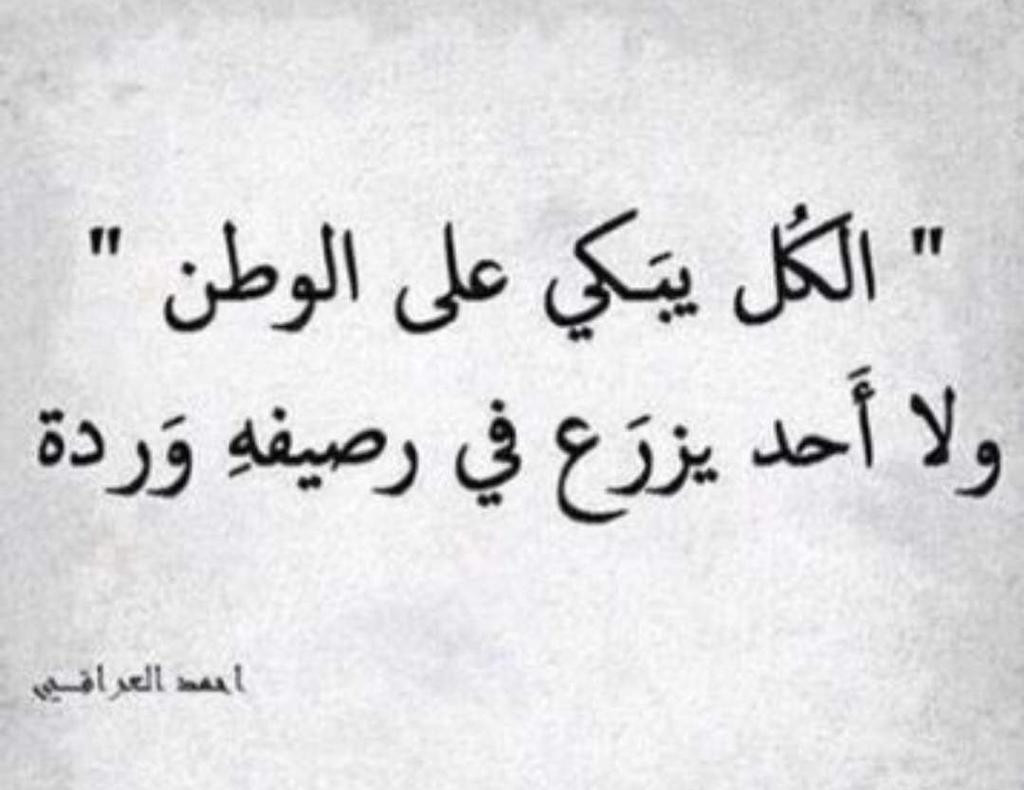 " الكُل يبَكي على الوطن "
ولا أَحد يزرَع في رصيفهِ وَردة
احمد العراقي